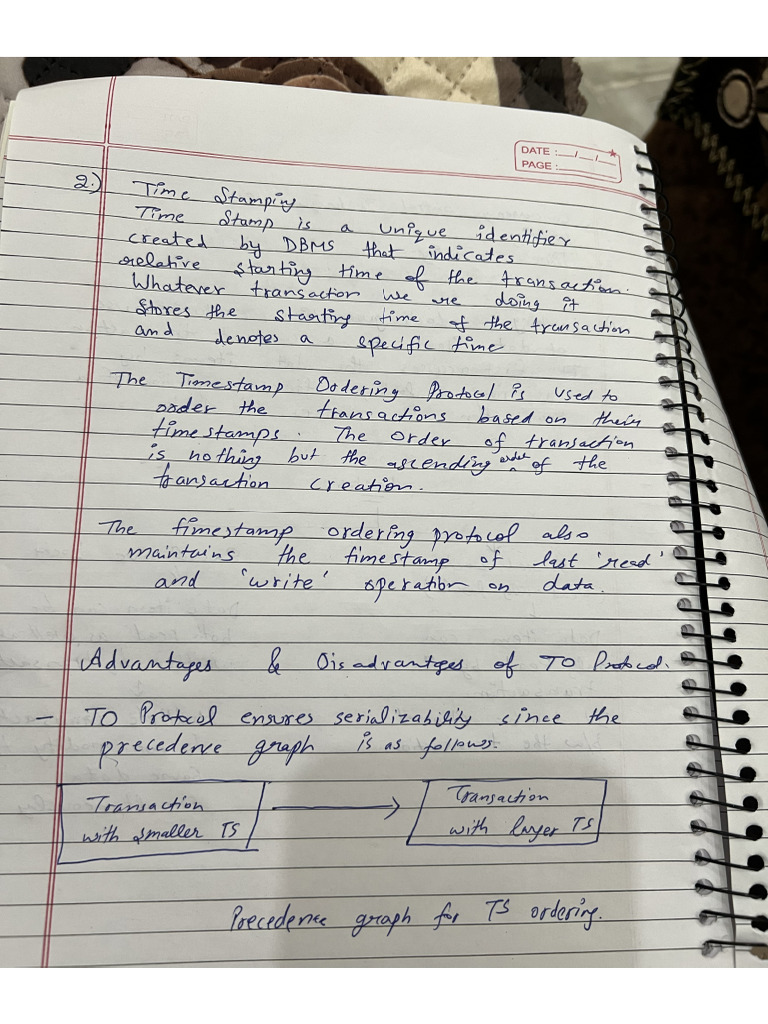 DATE :__/__/__
PAGE :
2.) Time Stamping
Time Stamp is a unique identifier
created by DBMS that indicates
relative starting time of the transaction.
Whatever transaction we are doing it
stores the starting time of the transaction
and denotes a specific time
The Timestamp Ordering Protocol is used to
order the transactions based on their
timestamps. The order of transaction
is nothing but the ascending order of the
transaction creation.
The timestamp ordering protocol also
maintains the timestamp of last 'read'
and 'write' operation on data.
Advantages & Disadvantges of TO Protocol.
- TO Protocol ensures serializability since the
precedence graph is as follows.
Transaction with smaller TS → Transaction with larger TS
Precedence graph for TS ordering.